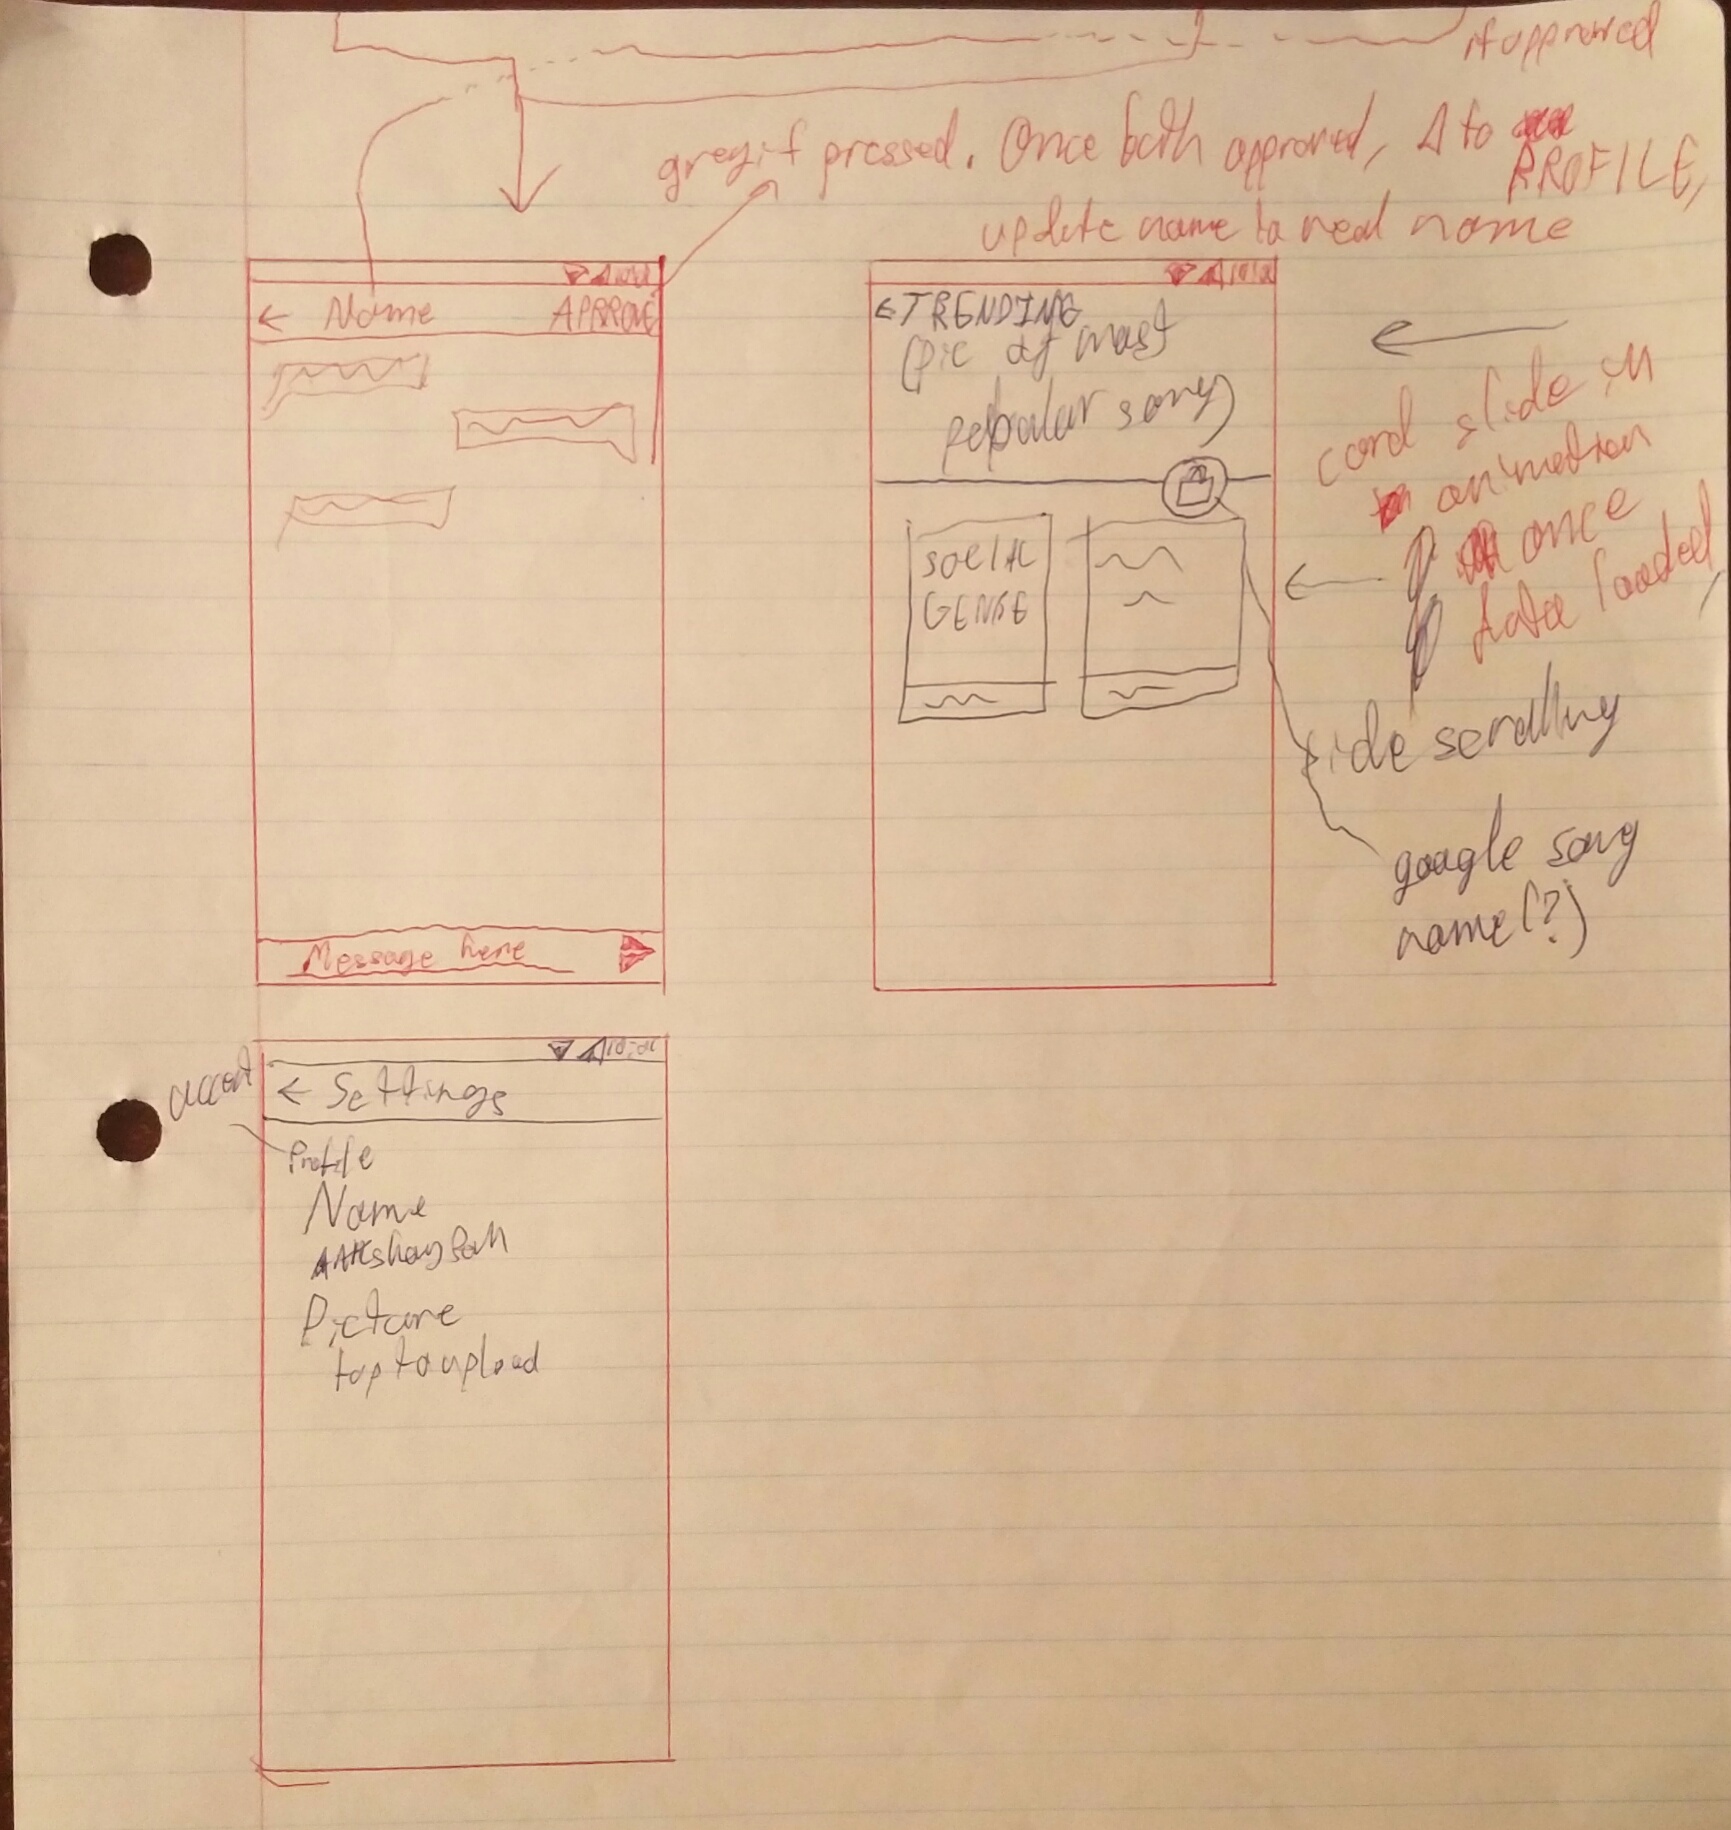 if approved
grey if pressed. Once both approved, Δ to
PROFILE,
update name to real name
← Name APPROVE
Message here
← TRENDING
(pic of most
popular song)
SOCIAL
GENRE
card slide in
animation
once
data loaded,
side scrolling
google song
name(?)
← Settings
Profile
Name
Picture
tap to upload